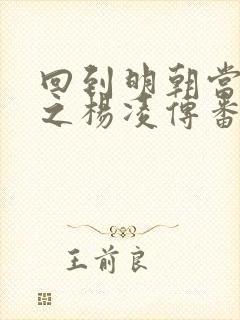 回到明朝当
之杨凌傳番
王前良